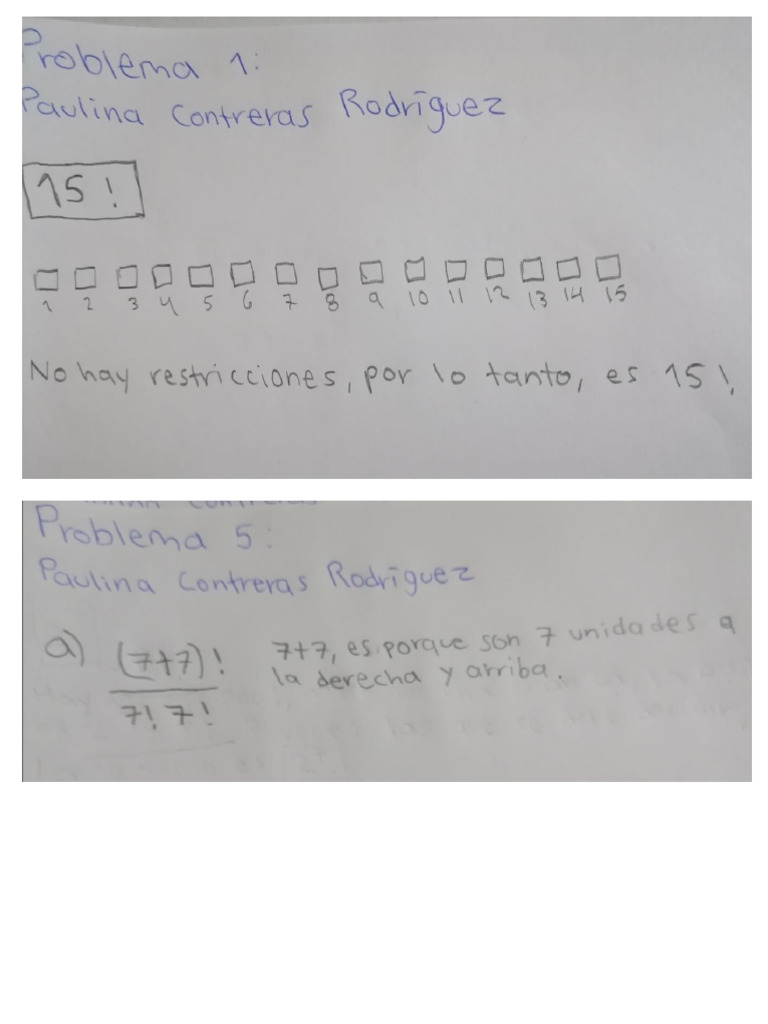 Problema 1:
Paulina Contreras Rodríguez
15!
1 2 3 4 5 6 7 8 9 10 11 12 13 14 15
No hay restricciones, por lo tanto, es 15!
Problema 5:
Paulina Contreras Rodríguez
a) (7+7)! 7+7, es porque son 7 unidades a
la derecha y arriba.
7! 7!